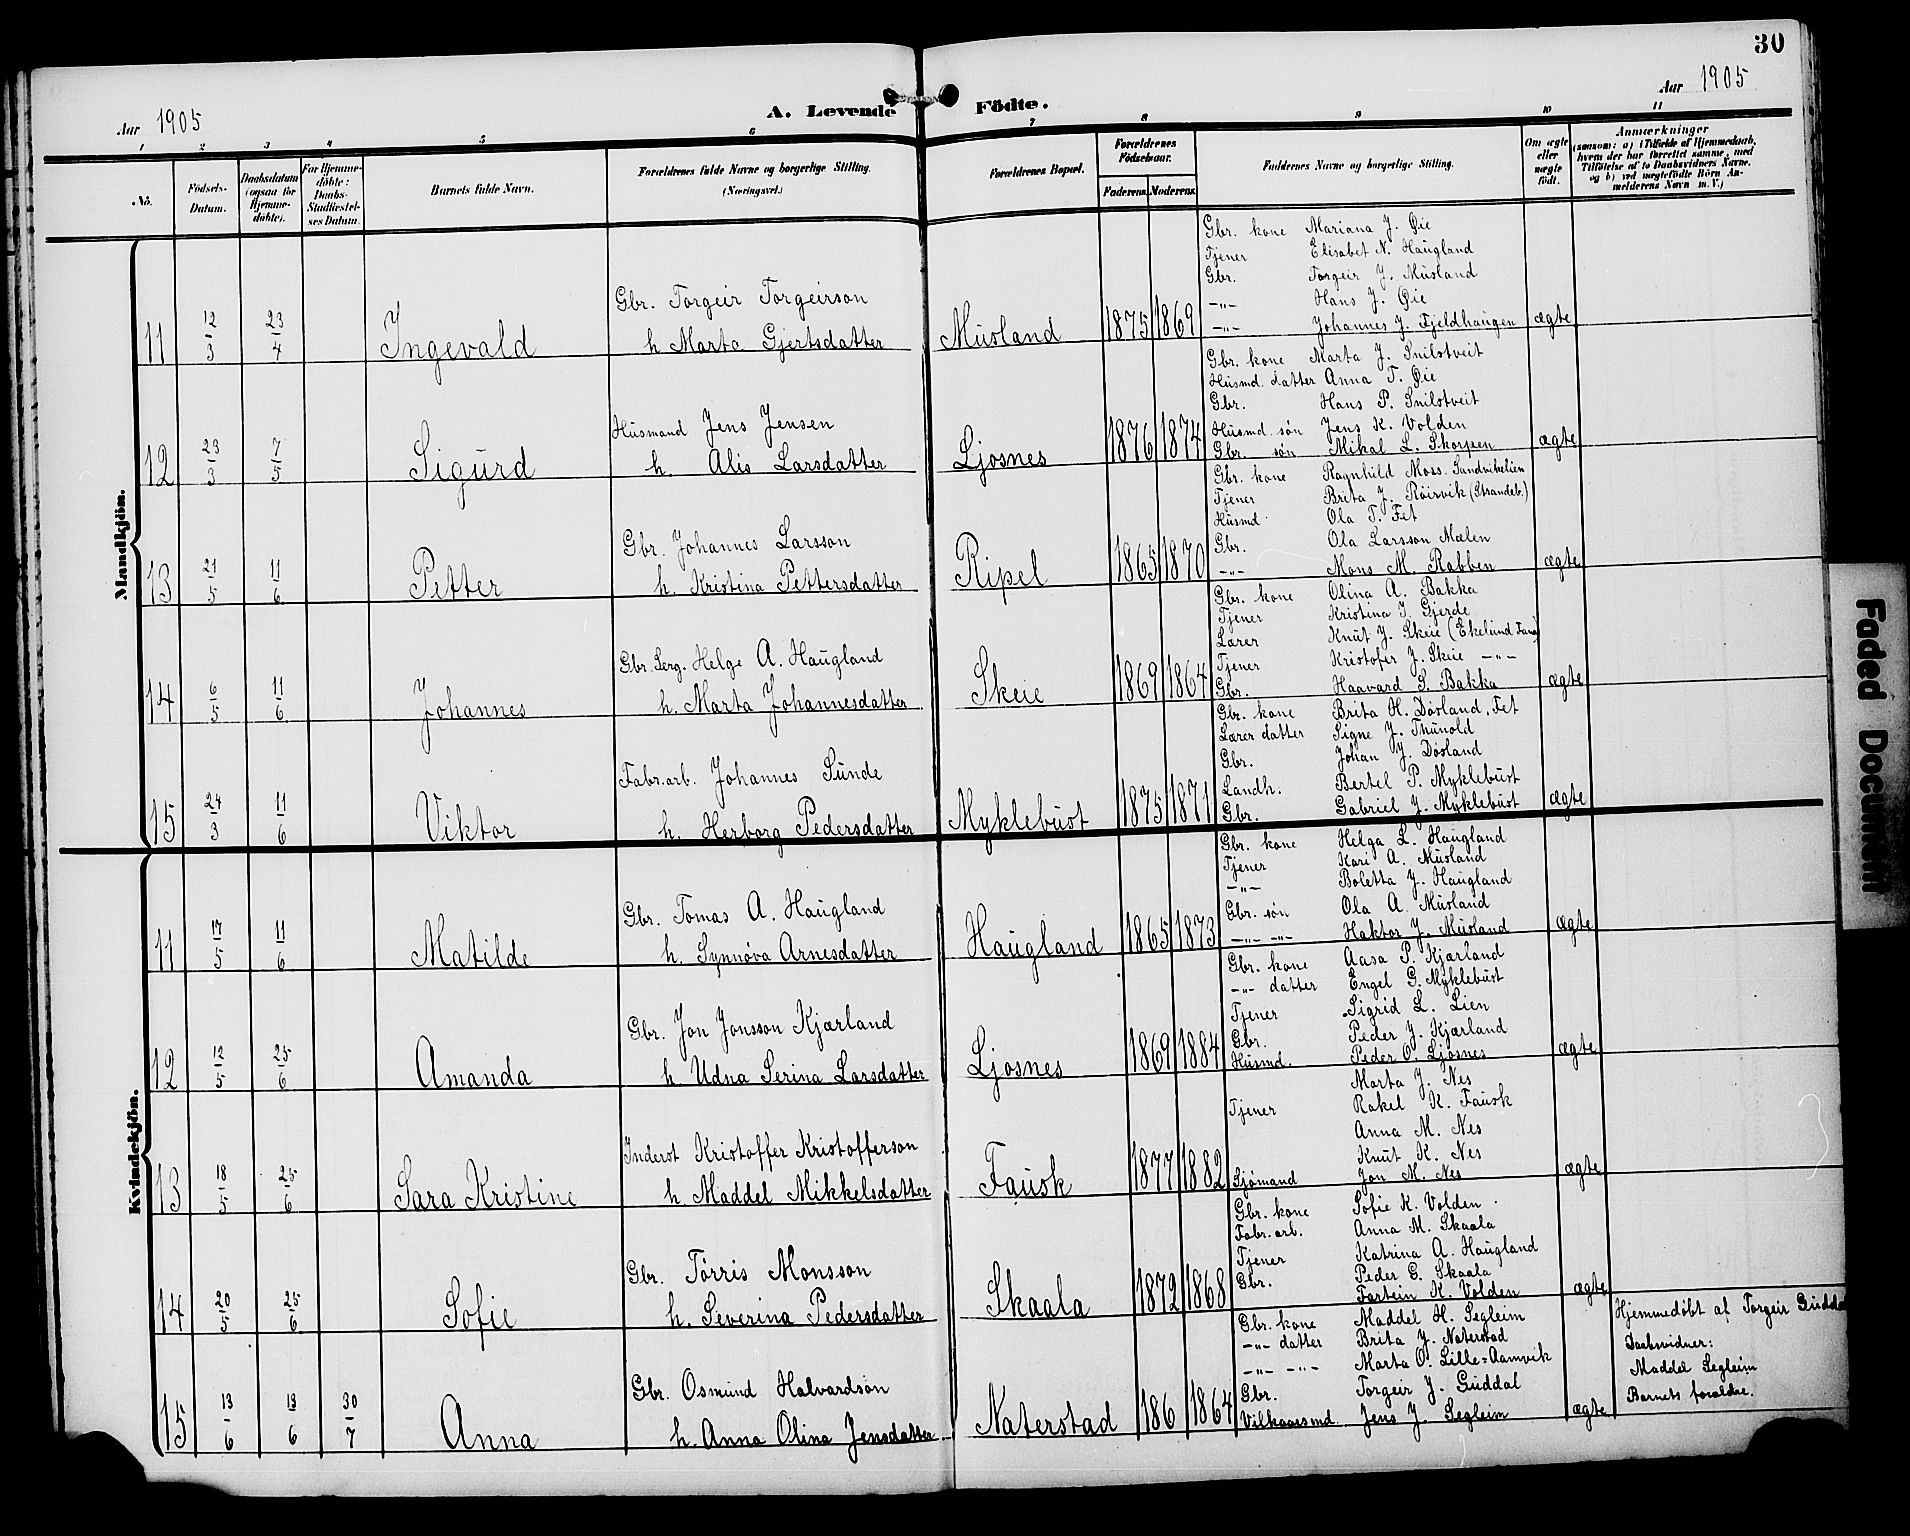 30
Aar 1905
A. Levende Födte.
Aar 1905
1 2 3 4 5 6 7 8 9 10 11
No.
Födsels-Datum.
Daabsdatum (ogsaa for Hjemme-döbte).
For Hjemme-döbte: Daabs-Stadfæstel-ses Datum.
Barnets fulde Navn.
Forældrenes fulde Navne og borgerlige Stilling. (Næringsvei.)
Forældrenes Bopæl.
Forældrenes Födselsaar.
Faderens. Moderens.
Faddernes Navne og borgerlige Stilling.
Om ægte eller uægte födt.
Anmærkninger (saasom: a) i Tilfælde af Hjemmedaab, hvem der har forrettet samme, med Tilföielse af to Daabsvidners Navne. og b) ved uægtefödte Börn An-melderens Navn m. V.)
Mandkjön.
Gbr. kone Mariana J. Øie
Tjener Elisabet N. Haugland
Gbr. Torgeir J. Musland
Gbr. Torgeir Torgeirson
-"- Hans J. Øie
11 12/3 23/4 Ingevald h Marta Gjertsdatter Musland 1875 1869 -"- Johannes J. Fjeldhaugen ægte
Gbr. kone Marta J. Snilstveit
Husmd. datter Anna T. Øie
Gbr. Hans P. Snilstveit
Husmand Jens Jensen
Husmd. søn Jens K. Volden
12 23/3 7/5 Sigurd h. Alis Larsdatter Ljosnes 1876 1874 Gbr. søn Mikal L. Skorpen ægte
Gbr. kone Ragnhild Moss. Sandvikelien
Tjener Brita J. Röirvik (Strandeb.)
Husmd. Ola T. Fet
Gbr. Johannes Larsson
Gbr. Ola Larsson Mælen
13 21/5 11/6 Petter h. Kristina Pettersdatter Ripel 1865 1870 -"- Mons M. Rabben ægte
Gbr. kone Olina A. Bakka
Tjener Kristina J. Gjerde
Lærer Knut J. Skeie (Ekelund Fana)
Gbr. Serg. Helge A. Haugland
Tjener Kristofer J. Skeie -"-
14 6/5 11/6 Johannes h. Marta Johannesdatter Skeie 1869 1864 Gbr. Haavard S. Bakka ægte
Gbr. kone Brita H. Døsland, Fet
Lærer datter Signe J. Thunold
Gbr. Johan J. Døsland
Fabr.arb. Johannes Sunde
Landh. Bertel P. Myklebust
15 24/3 11/6 Viktor h. Herborg Pedersdatter Myklebust 1875 1871 Gbr. Gabriel J. Myklebust ægte
Kvindekjön.
Gbr. kone Helga L. Haugland
Tjener Kari A. Musland
-"- Boletta J. Haugland
Gbr. Tomas A. Haugland
Gbr. søn Ola A. Musland
11 17/5 11/6 Matilde h. Synnøva Arnesdatter Haugland 1865 1873 -"- -"- Haktor J. Musland ægte
Gbr. kone Aasa P. Kjærland
-"- datter Engel G. Myklebust
Tjener Sigrid L. Lien
Gbr. Jon Jonsson Kjærland
Gbr. Peder J. Kjærland
12 12/5 25/6 Amanda h Udna Serina Larsdatter Ljosnes 1869 1884 Husmd. Peder O. Ljosnes ægte
Marta J. Nes
Tjener Rakel K. Fausk
Anna M. Nes
Inderst Kristoffer Kristofferson
Knut K. Nes
13 18/5 25/6 Sara Kristine h. Maddel Mikkelsdatter Fausk 1877 1882 Sjømand Jon M. Nes ægte
Gbr. kone Sofie K. Volden
Fabr. arb. Anna M. Skaala
Tjener Katrina A. Haugland
Gbr. Tørris Monsson
Gbr. Peder G. Skaala
14 20/5 25/6 Sofie h. Severina Pedersdatter Skaala 1872 1868 Fartein K. Volden ægte
Gbr. kone Maddel H. Segleim
-"- datter Brita J. Naterstad
-"- -"- Marta O. Lille=Aamvik
Gbr. Osmund Halvardsøn
Gbr. Torgeir J. Guddal
15 13/6 13/6 30/7 Anna h. Anna Olina Jensdatter Naterstad 186 1864 Vilkaarsmd. Jens J. Segleim ægte
Hjemmedøbt af Torgeir Guddal
Daabsvidner:
Maddel Segleim
Barnets forældre.
Faded Document